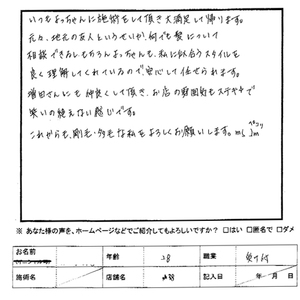 いつもよっちゃんに施術をして頂き大満足して帰ります。
元々、地元の友人というせいか、何でも髪について
相談できるしもちろんよっちゃんも、私に似合うスタイルを
良く理解してくれているので、安心して任せられます。
増田さんにも仲良くして頂き、お店の雰囲気もステキで
笑いの絶えない感じです。
これからも、剛毛・多毛な私をよろしくお願いします。m(_ _)m ペコリ
※ あなた様の声を、ホームページなどでご紹介してもよろしいですか? □はい □匿名で □ダメ
お名前 年齢 28 職業
施術名 店舗名 記入日 年 月 日